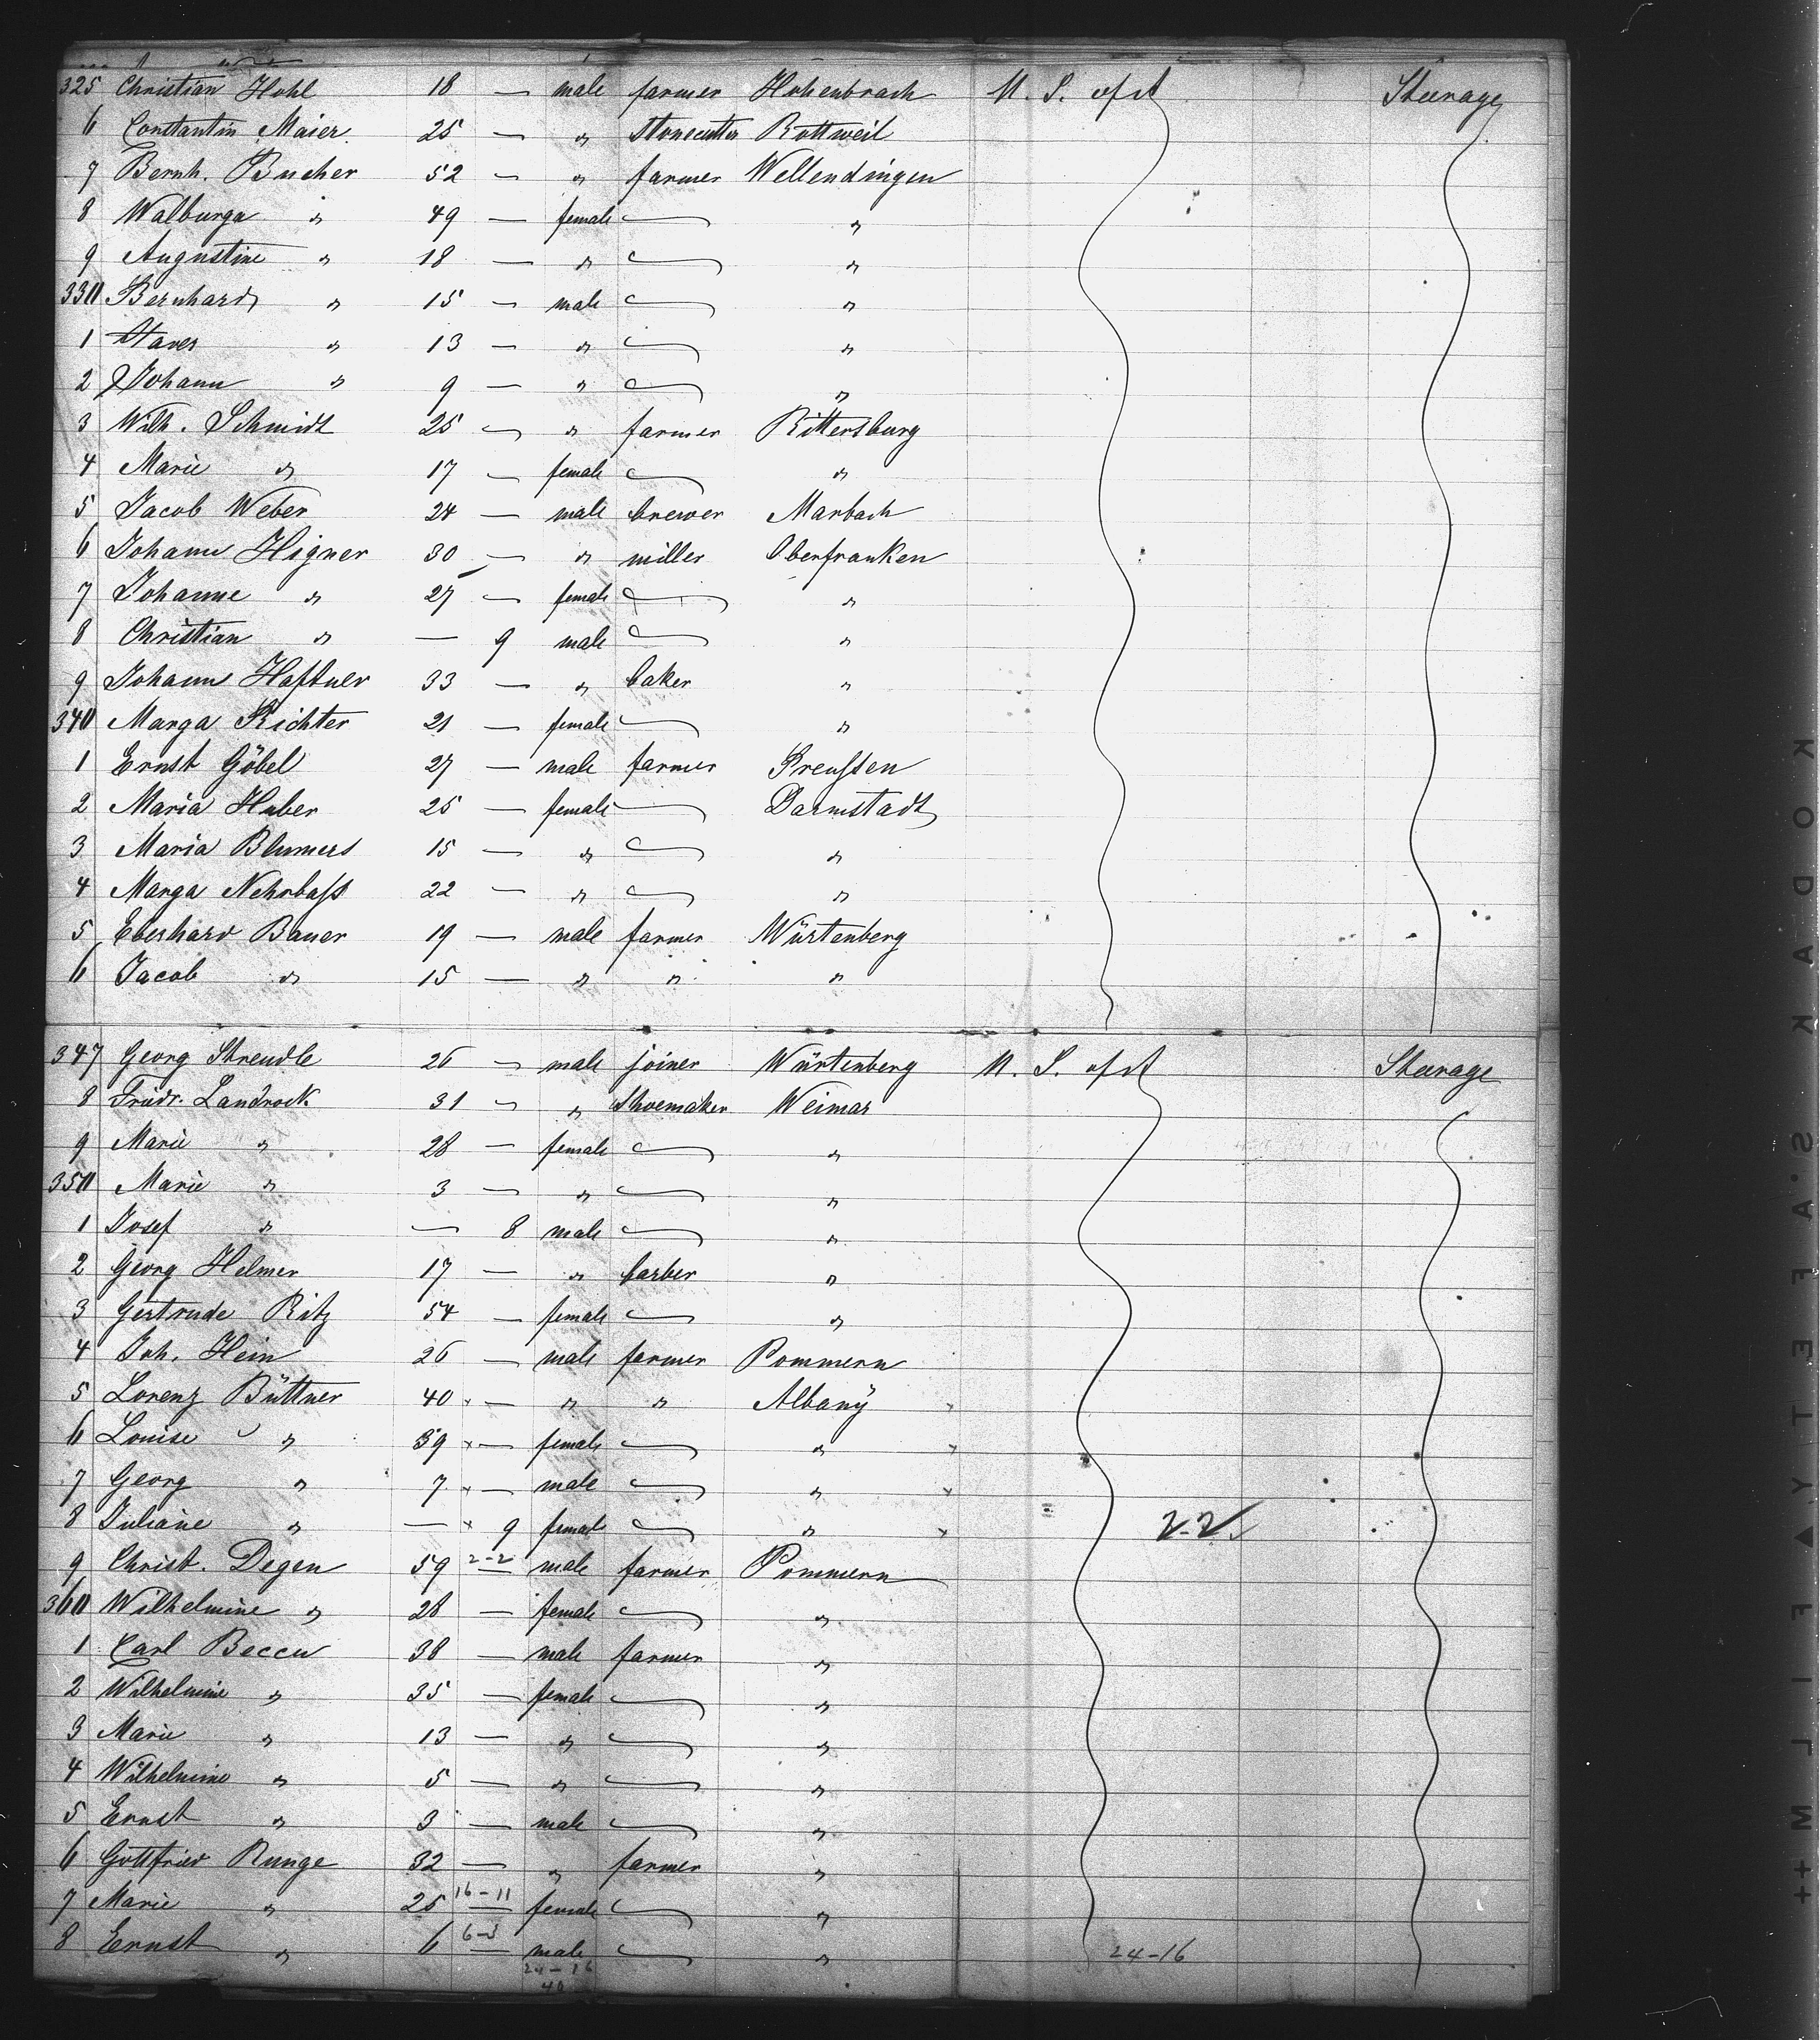 325 Christian Hohl 18 — male farmer Hohenbrach U. S. of A Steerage
6 Constantin Maier 25 — " Stonecutter Rottweil
7 Bernh. Bucher 52 — " farmer Wellendingen
8 Walburga " 49 — female — "
9 Augustine " 18 — " — "
330 Bernhard " 15 — male — "
1 Xaver " 13 — " — "
2 Johann " 9 — " — "
3 Wilh. Schmidt 25 — " farmer Rittersburg
4 Marie " 17 — female — "
5 Jacob Weber 24 — male brewer Marbach
6 Johann Higner 30 — " miller Oberfranken
7 Johanne " 27 — female — "
8 Christian " — 9 male — "
9 Johann Haftner 33 — " baker "
340 Marga Richter 21 — female — "
1 Ernst Göbel 27 — male farmer Preussen
2 Maria Huber 25 — female — Darmstadt
3 Maria Blumers 15 — " — "
4 Marga Nehrbass 22 — " — "
5 Eberhard Bauer 19 — male farmer Würtenberg
6 Jacob " 15 — " " "
347 Georg Streudle 26 — male joiner Würtenberg U. S. of A Steerage
8 Friedr. Landrock 31 — " Shoemaker Weimar
9 Marie " 28 — female — "
350 Marie " 3 — " — "
1 Josef " — 8 male — "
2 Georg Helmer 17 — " barber "
3 Gertrude Ritz 54 — female — "
4 Joh. Hein 26 — male farmer Pommern
5 Lorenz Büttner 40 × — " " Albany
6 Louise " 39 × — female — "
7 Georg " 7 × — male — "
8 Juliane " — × 9 female — " 2-2
9 Christ. Degen 59 2-2 — male farmer Pommern
360 Wilhelmine " 28 — female — "
1 Carl Beccu 38 — male farmer "
2 Wilhelmine " 35 — female — "
3 Marie " 13 — " — "
4 Wilhelmine " 5 — " — "
5 Ernst " 3 — male — "
6 Gottfried Runge 32 — " farmer "
7 Marie " 25 16-11 — female — "
8 Ernst " 6 6-3 — male — " 24-16
24-16
40
KODAK S.'AFETY FILM